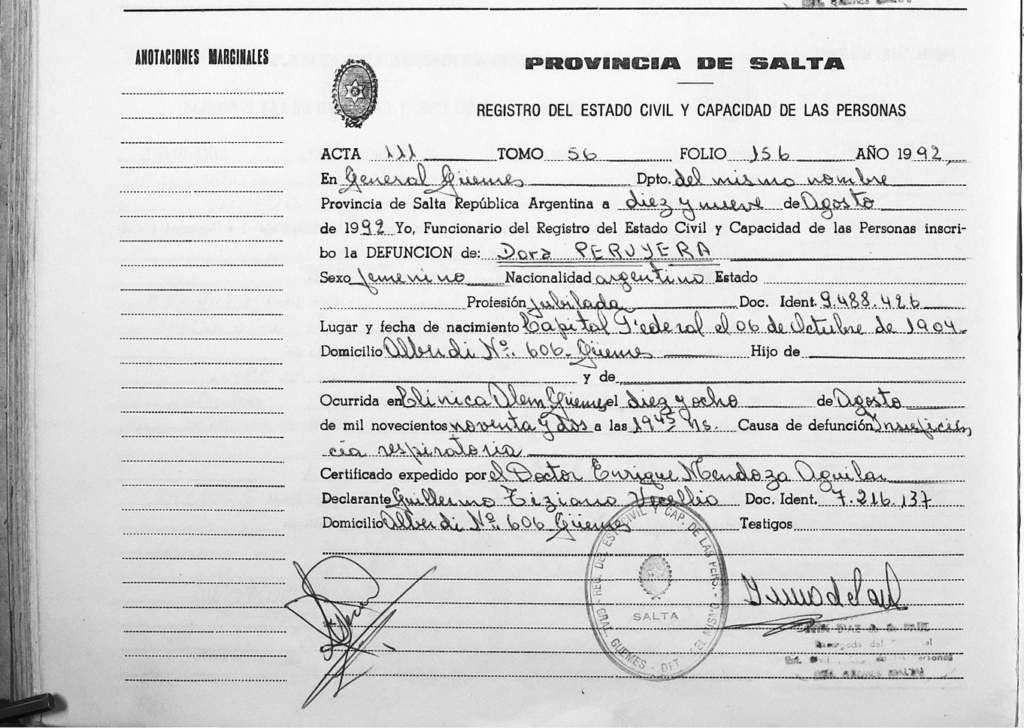 ANOTACIONES MARGINALES
PROVINCIA DE SALTA
REGISTRO DEL ESTADO CIVIL Y CAPACIDAD DE LAS PERSONAS
ACTA 111 TOMO 56 FOLIO 156 AÑO 1992
En General Güemes Dpto. del mismo nombre
Provincia de Salta República Argentina a diez y nueve de Agosto
de 1992 Yo, Funcionario del Registro del Estado Civil y Capacidad de las Personas inscri-
bo la DEFUNCION de: Dora PERUYERA
Sexo femenino Nacionalidad argentino Estado
Profesión jubilada Doc. Ident. 9.488.426
Lugar y fecha de nacimiento Capital Federal el 06 de Octubre de 1904.
Domicilio Alberdi Nº. 606- Güemes Hijo de
y de
Ocurrida en Clínica Alem Güemes el diez y ocho de Agosto
de mil novecientos noventa y dos a las 19 45 hs. Causa de defunción Insuficien
cia respiratoria
Certificado expedido por el Doctor Enrique Mendoza Aguilar
Declarante Guillermo Tiziano Vecellio Doc. Ident. 7.216.137
Domicilio Alberdi Nº. 606 Güemes Testigos
REG. DEL EST. CIVIL Y CAP. DE LAS PERS.
SALTA
GRAL. GUEMES - DTO. DEL MISMO
DIAZ DE PAUL